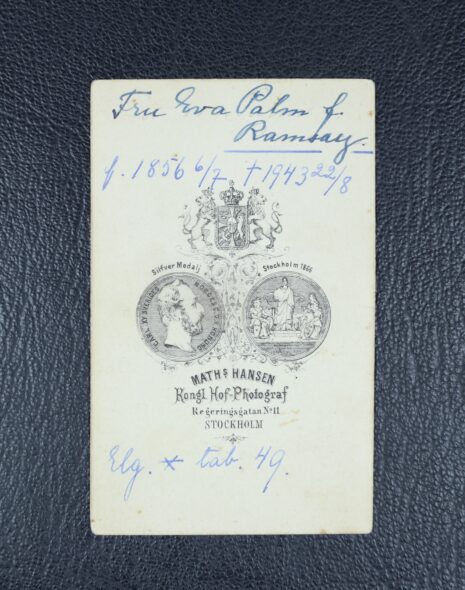 Fru Eva Palm f.
Ramsay.
f. 1856 6/7 † 1943 22/8
Silfver Medalj
Stockholm 1866
CARL XV SVERIGES
MATHS HANSEN
Kongl. Hof-Photograf
Regeringsgatan No 11
STOCKHOLM
Elg. * tab. 49.